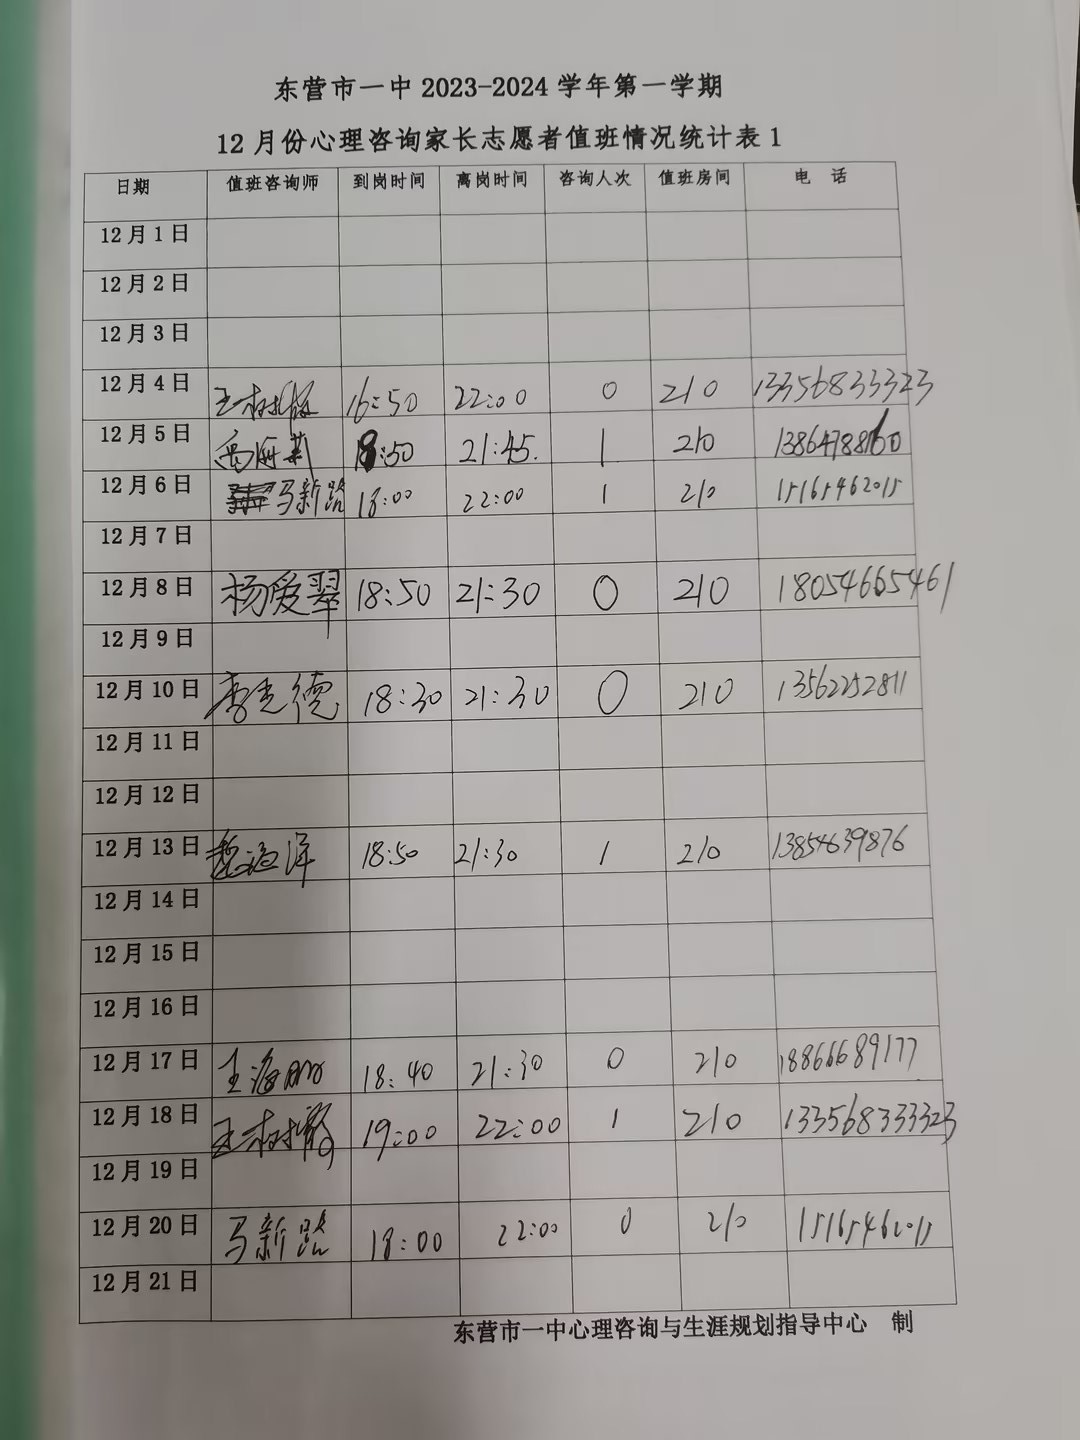 东营市一中 2023-2024 学年第一学期
12 月份心理咨询家长志愿者值班情况统计表 1
日期 值班咨询师 到岗时间 离岗时间 咨询人次 值班房间 电 话
12 月 1 日
12 月 2 日
12 月 3 日
12 月 4 日 王树 16:50 22:00 0 210 13356833323
12 月 5 日 18:50 21:45. 1 210 13864788160
12 月 6 日 马新路 18:00 22:00 1 210 15165462015
12 月 7 日
12 月 8 日 杨爱翠 18:50 21:30 0 210 18054665461
12 月 9 日
12 月 10 日 李克德 18:30 21:30 0 210 13562252811
12 月 11 日
12 月 12 日
12 月 13 日 海洋 18:50 21:30 1 210 13854639876
12 月 14 日
12 月 15 日
12 月 16 日
12 月 17 日 王海 18:40 21:30 0 210 18866689177
12 月 18 日 王树 19:00 22:00 1 210 133568333323
12 月 19 日
12 月 20 日 马新路 18:00 22:00 0 210 15165462015
12 月 21 日
东营市一中心理咨询与生涯规划指导中心 制